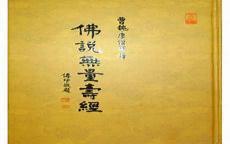 曹魏康僧鎧譯
佛說無量壽經